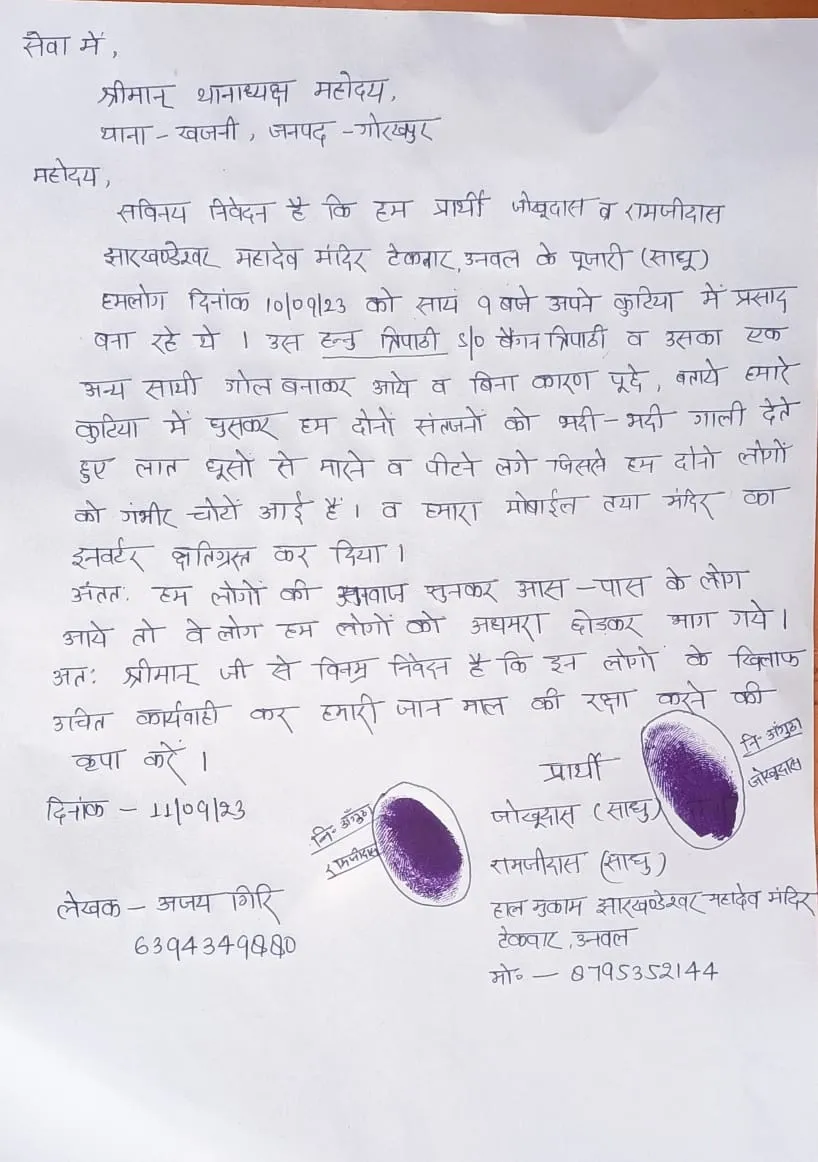 सेवा में,
श्रीमान् थानाध्यक्ष महोदय,
थाना - खजनी, जनपद - गोरखपुर
महोदय,
सविनय निवेदन है कि हम प्रार्थी जोखूदास व रामजीदास
झारखण्डेश्वर महादेव मंदिर टेकवार, उनवल के पूजारी (साधू)
हमलोग दिनांक 10/09/23 को सायं 9 बजे अपने कुटिया में प्रसाद
बना रहे थे । उस हन्नु त्रिपाठी S/O बैगन त्रिपाठी व उसका एक
अन्य साथी गोल बनाकर आये व बिना कारण पूछे, बताये हमारे
कुटिया में घुसकर हम दोनों संतजनों को भदी-भदी गाली देते
हुए लात घूसों से मारने व पीटने लगे जिससे हम दोनो लोगों
को गंभीर चोटों आई हैं । व हमारा मोबाईल तथा मंदिर का
इनवर्टर क्षतिग्रस्त कर दिया ।
अंततः हम लोगों की सुनकर आस-पास के लोग
आये तो वे लोग हम लोगों को अधमरा छोड़कर भाग गये ।
अतः श्रीमान् जी से विनम्र निवेदन है कि इन लोगों के खिलाफ
उचित कार्यवाही कर हमारी जान माल की रक्षा करने की
कृपा करें ।
प्रार्थी
नि॰ अंगुठा
जोखूदास
दिनांक - 11/09/23
नि॰ अँगुठा
रामजीदास
जोखूदास (साधु)
रामजीदास (साधु)
लेखक - अजय गिरि
6394349880
हाल मुकाम झारखण्डेश्वर महादेव मंदिर
टेकवार, उनवल
मो॰ - 8795352144